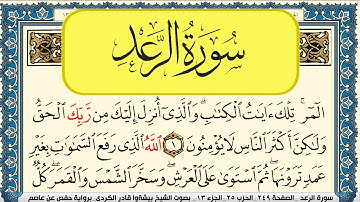 سُورَةُ الرَّعْدِ
الٓمٓرۚ تِلْكَ ءَايَٰتُ ٱلْكِتَٰبِۗ وَٱلَّذِىٓ أُنزِلَ إِلَيْكَ مِن رَّبِّكَ ٱلْحَقُّ
وَلَٰكِنَّ أَكْثَرَ ٱلنَّاسِ لَا يُؤْمِنُونَ ١ ٱللَّهُ ٱلَّذِى رَفَعَ ٱلسَّمَٰوَٰتِ بِغَيْرِ
عَمَدٍ تَرَوْنَهَاۖ ثُمَّ ٱسْتَوَىٰ عَلَى ٱلْعَرْشِۖ وَسَخَّرَ ٱلشَّمْسَ وَٱلْقَمَرَۖ كُلٌّ
سورة الرعد - الصفحة ٢٤٩ - الحزب ٢٥ - الجزء ١٣ - بصوت الشيخ بيشةوا قادر الكردي، برواية حفص عن عاصم